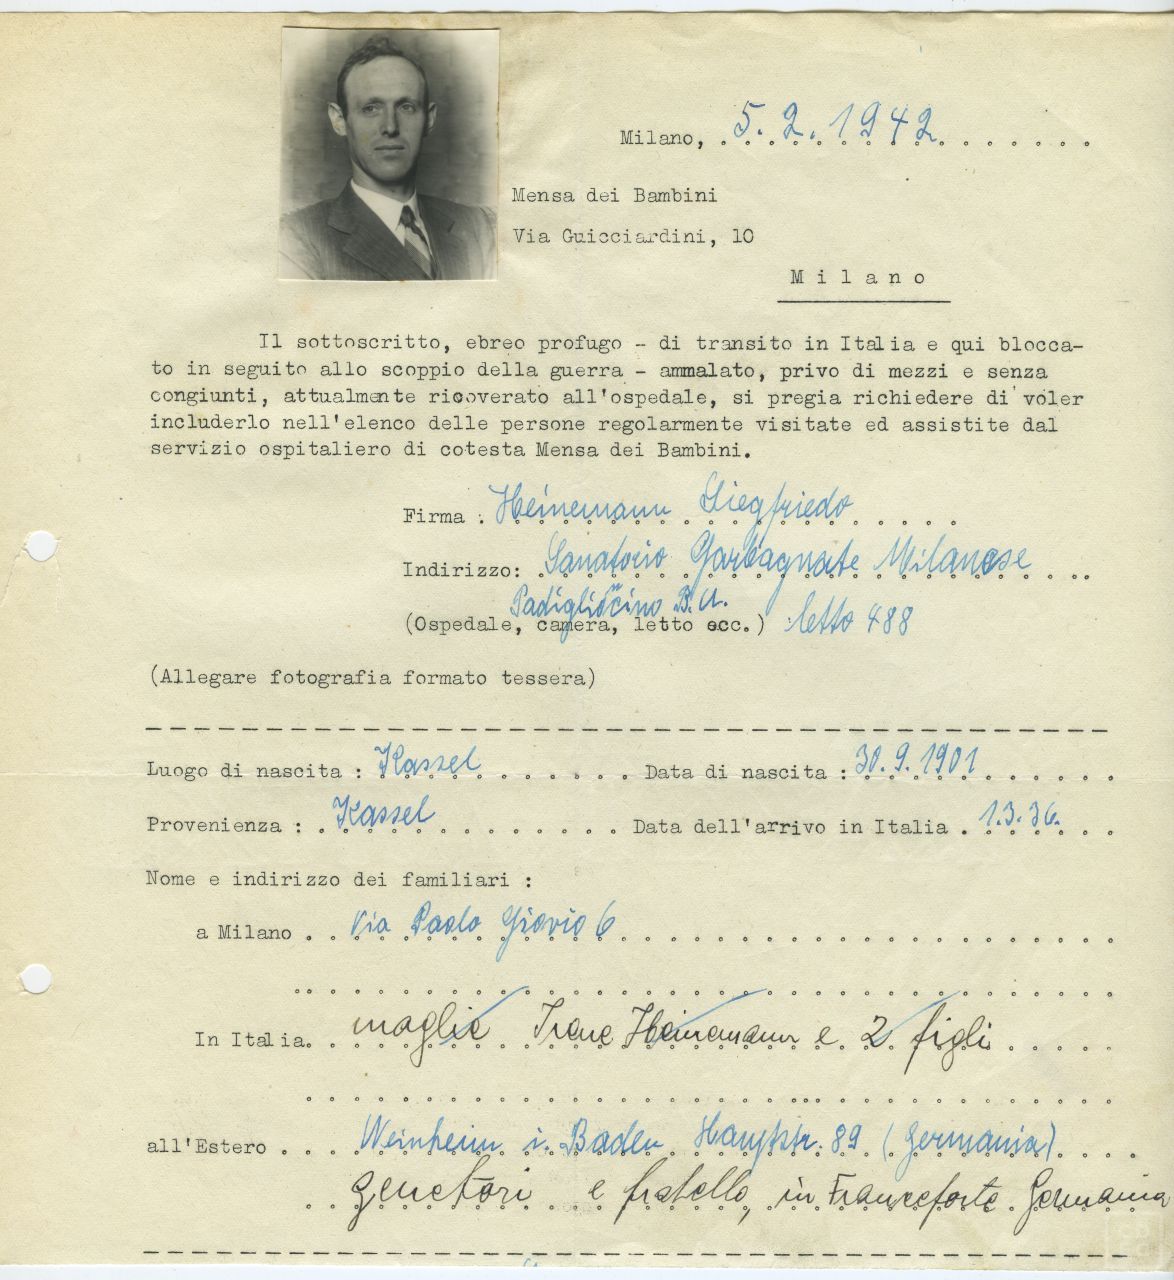 Milano, 5.2.1942
Mensa dei Bambini
Via Guicciardini, 10
Milano
Il sottoscritto, ebreo profugo - di transito in Italia e qui blocca-
to in seguito allo scoppio della guerra - ammalato, privo di mezzi e senza
congiunti, attualmente ricoverato all'ospedale, si pregia richiedere di voler
includerlo nell'elenco delle persone regolarmente visitate ed assistite dal
servizio ospitaliero di cotesta Mensa dei Bambini.
Firma : Heinemann Siegfriedo
Indirizzo: Sanatorio Garbagnate Milanese
B.U.
(Ospedale, camera, letto ecc.) letto 488
(Allegare fotografia formato tessera)
Luogo di nascita : Kassel Data di nascita : 30.9.1901
Provenienza : Kassel Data dell'arrivo in Italia 1.3.36.
Nome e indirizzo dei familiari :
a Milano Via Paolo Giovio 6
In Italia. moglie Irene Heinemann e 2 figli
all'Estero Weinheim i. Baden Hauptstr. 89 (Germania)
genetori e fratello, in Francoforte Germania